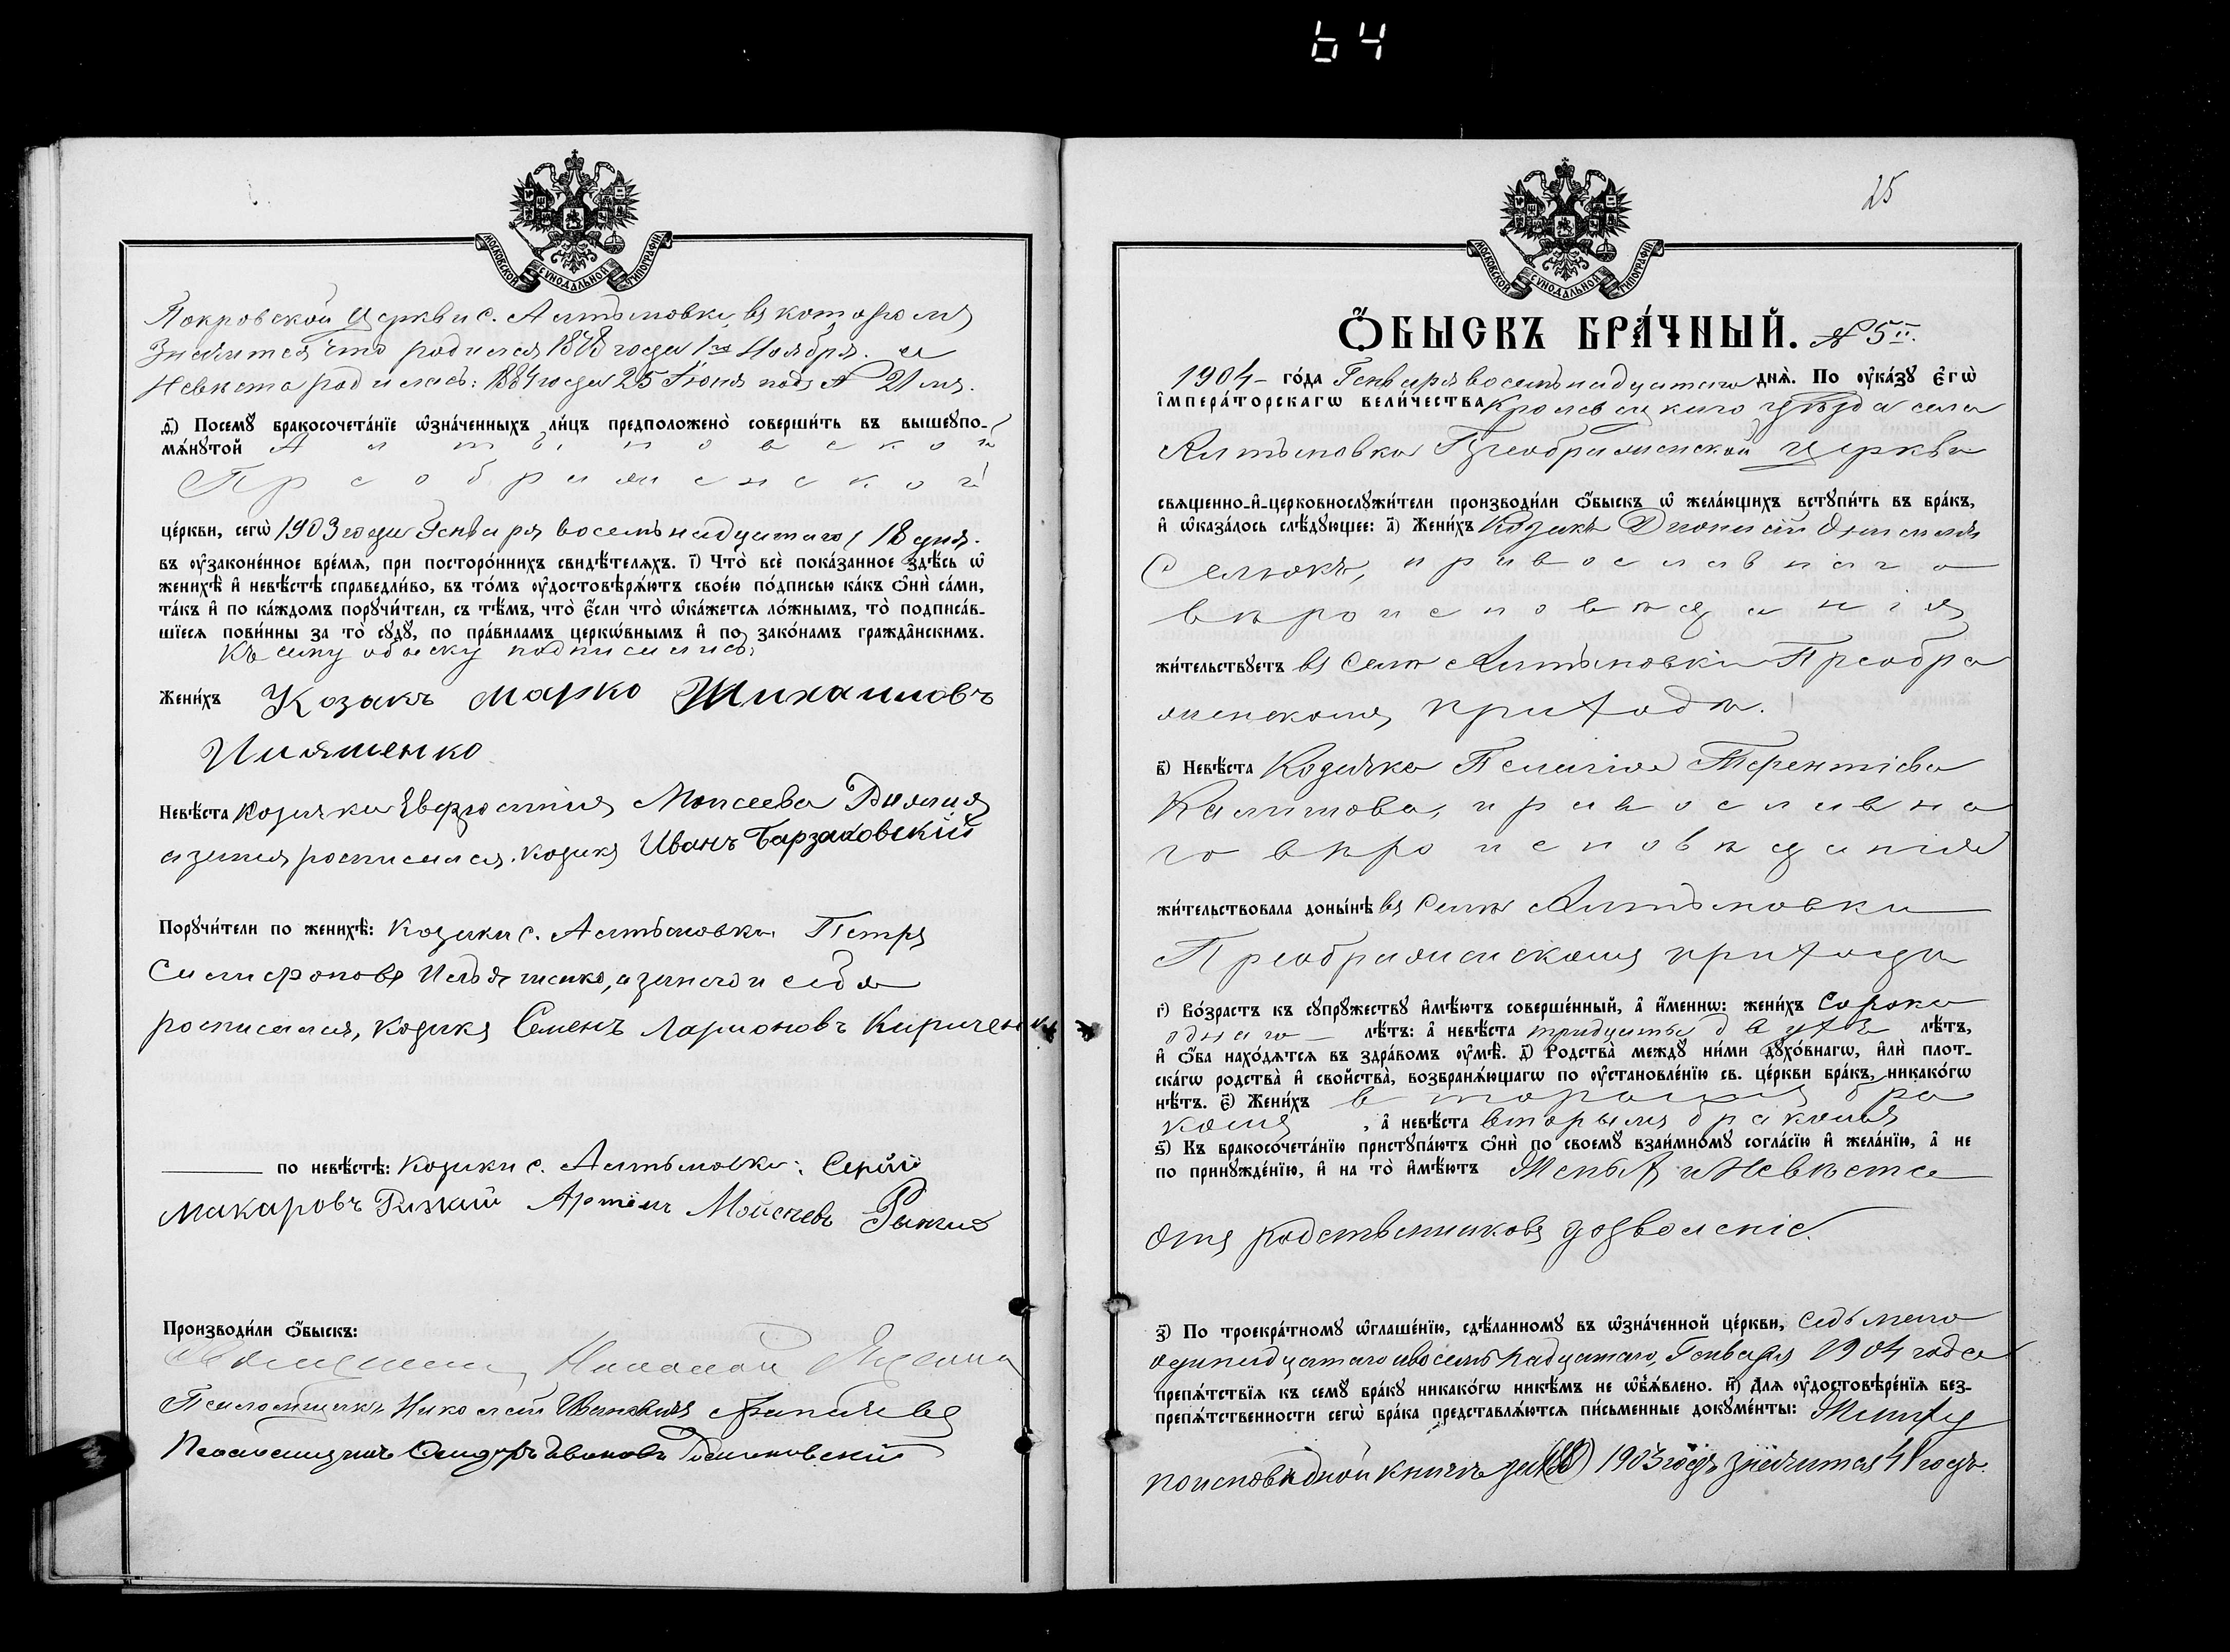 64
МОСКОВСКОЙ СѴНОДАЛЬНОЙ ТИПОГРАФІИ
Покровской церкви с. Алтыновки, въ которомъ
Значится что родился 1878 года 1го Ноября. а
Невѣста родилась: 1884 года 25 Іюня подъ № 21мъ.
д҃) Посемꙋ̀ бракосочета́нїе ѡ҆зна́ченныхъ ли́цъ предположено̀ соверши́ть въ вышеꙋпо-
мѧ́нꙋтой Алтыновской
Преображенской
це́ркви, сегѡ̀ 1903 года Генваря восемьнадцатаго, 18 дня.
въ ᲂу҆законе́нное вре́мѧ, при посторо́ннихъ свидѣ́телѧхъ. і҃) Что̀ всѐ пока́занное здѣ́сь ѡ҆
женихѣ̀ и҆ невѣ́стѣ справедли́во, въ то́мъ ᲂу҆достовѣрѧ́ютъ свое́ю по́дписью ка́къ ѻ҆нѝ са́ми,
та́къ и҆ по ка́ждомъ порꙋчи́тели, съ тѣ́мъ, что̀ є҆́сли что̀ ѡ҆ка́жетсѧ ло́жнымъ, то̀ подписа́в-
шїесѧ пови́нны за то̀ сꙋдꙋ̀, по пра́виламъ церкѡ́внымъ и҆ по зако́намъ гражда̂нскимъ.
Къ сему обыску подписались:
Жени́хъ Козакъ Марко Михаиловъ
Ильяшенко
Невѣ́ста Козачка Евфросинія Моисеева
росписался. козакъ Иванъ Барзаковскій
Порꙋчи́тели по женихѣ̀: Козаки с. Алтыновки Петръ
Ильяшенко, а за него и себя
росписался, козакъ Семенъ Ларионовъ Кириченко
по невѣ́стѣ: Козаки с. Алтыновки: Сергій
Макаровъ Рижий Артемъ Мойсеевъ Рыжий
Производи́ли ѻ҆́быскъ:
Николай
Псаломщикъ Николай Ивановичъ
Псаломщикъ
25
МОСКОВСКОЙ СѴНОДАЛЬНОЙ ТИПОГРАФІИ
Ѻ҆́БЫСКЪ БРА́ЧНЫЙ. № 5й.
1904 – го́да Генваря восемьнадцатаго днѧ̀. По ᲂу҆ка́зꙋ є҆гѡ̀
і҆мпера́торскагѡ вели́чества Кролевецкаго уѣзда села
Алтыновки Преображенской церкви
свѧщенно-и҆-церковнослꙋжи́тели производи́ли ѻ҆́быскъ ѡ҆ жела́ющихъ встꙋпи́ть въ бра́къ,
и҆ ѡ҆каза́лось слѣ́дꙋющее: а҃) Жени́хъ Козакъ Діонисій
Селюкъ, православнаго
вѣроисповѣданія
жи́тельствꙋетъ въ селѣ Алтыновки Преобра
женскомъ приходѣ.
в҃) Невѣ́ста Козачка Пелагія Терентіева
Калитова, православна
го вѣроисповѣданія
жи́тельствовала доны́нѣ въ селѣ Алтыновки
Преображенскомъ прихода
г҃) Во́зрастъ къ сꙋпрꙋ́жествꙋ и҆мѣ́ютъ соверше́нный, а҆ и҆́меннѡ: жени́хъ Сорока
одного – лѣ́тъ: а҆ невѣ́ста тридцать двухъ лѣ́тъ,
и҆ ѻ҆́ба нахо́дѧтсѧ въ здра́вомъ ᲂу҆мѣ̀. д҃) Родства̀ междꙋ̀ ни́ми дꙋхо́внагѡ, и҆лѝ плот-
ска́гѡ родства̀ и҆ свойства̀, возбранѧ́ющагѡ по ᲂу҆становле́нїю св. це́ркви бра́къ, никако́гѡ
нѣ́тъ. є҃) Жени́хъ вторымъ бра
комъ , а҆ невѣ́ста вторымъ бракомъ
ѕ҃) Къ бракосочета́нїю пристꙋпа́ютъ ѻ҆нѝ по своемꙋ̀ взаи́мномꙋ согла́сїю и҆ жела́нїю, а҆ не
по принꙋжде́нїю, и҆ на то̀ и҆мѣ́ютъ Женихъ и Невѣста
отъ родственниковъ дозволеніе.
з҃) По троекра́тномꙋ ѡ҆глаше́нїю, сдѣ́ланномꙋ въ ѡ҆зна́ченной це́ркви, седьмаго
одинадцатаго и восемьнадцатаго, Генваря 1904 года
препѧ́тствїѧ къ семꙋ̀ бра́кꙋ никако́гѡ никѣ́мъ не ѡ҆б̾ѧ́влено. и҃) Длѧ ᲂу҆достовѣре́нїѧ без-
препѧ́тственности сегѡ̀ бра́ка представлѧ́ютсѧ пи́сьменные докꙋме́нты: Жениху
по исповѣдной книгѣ за 1903 годъ значится 41 годъ.